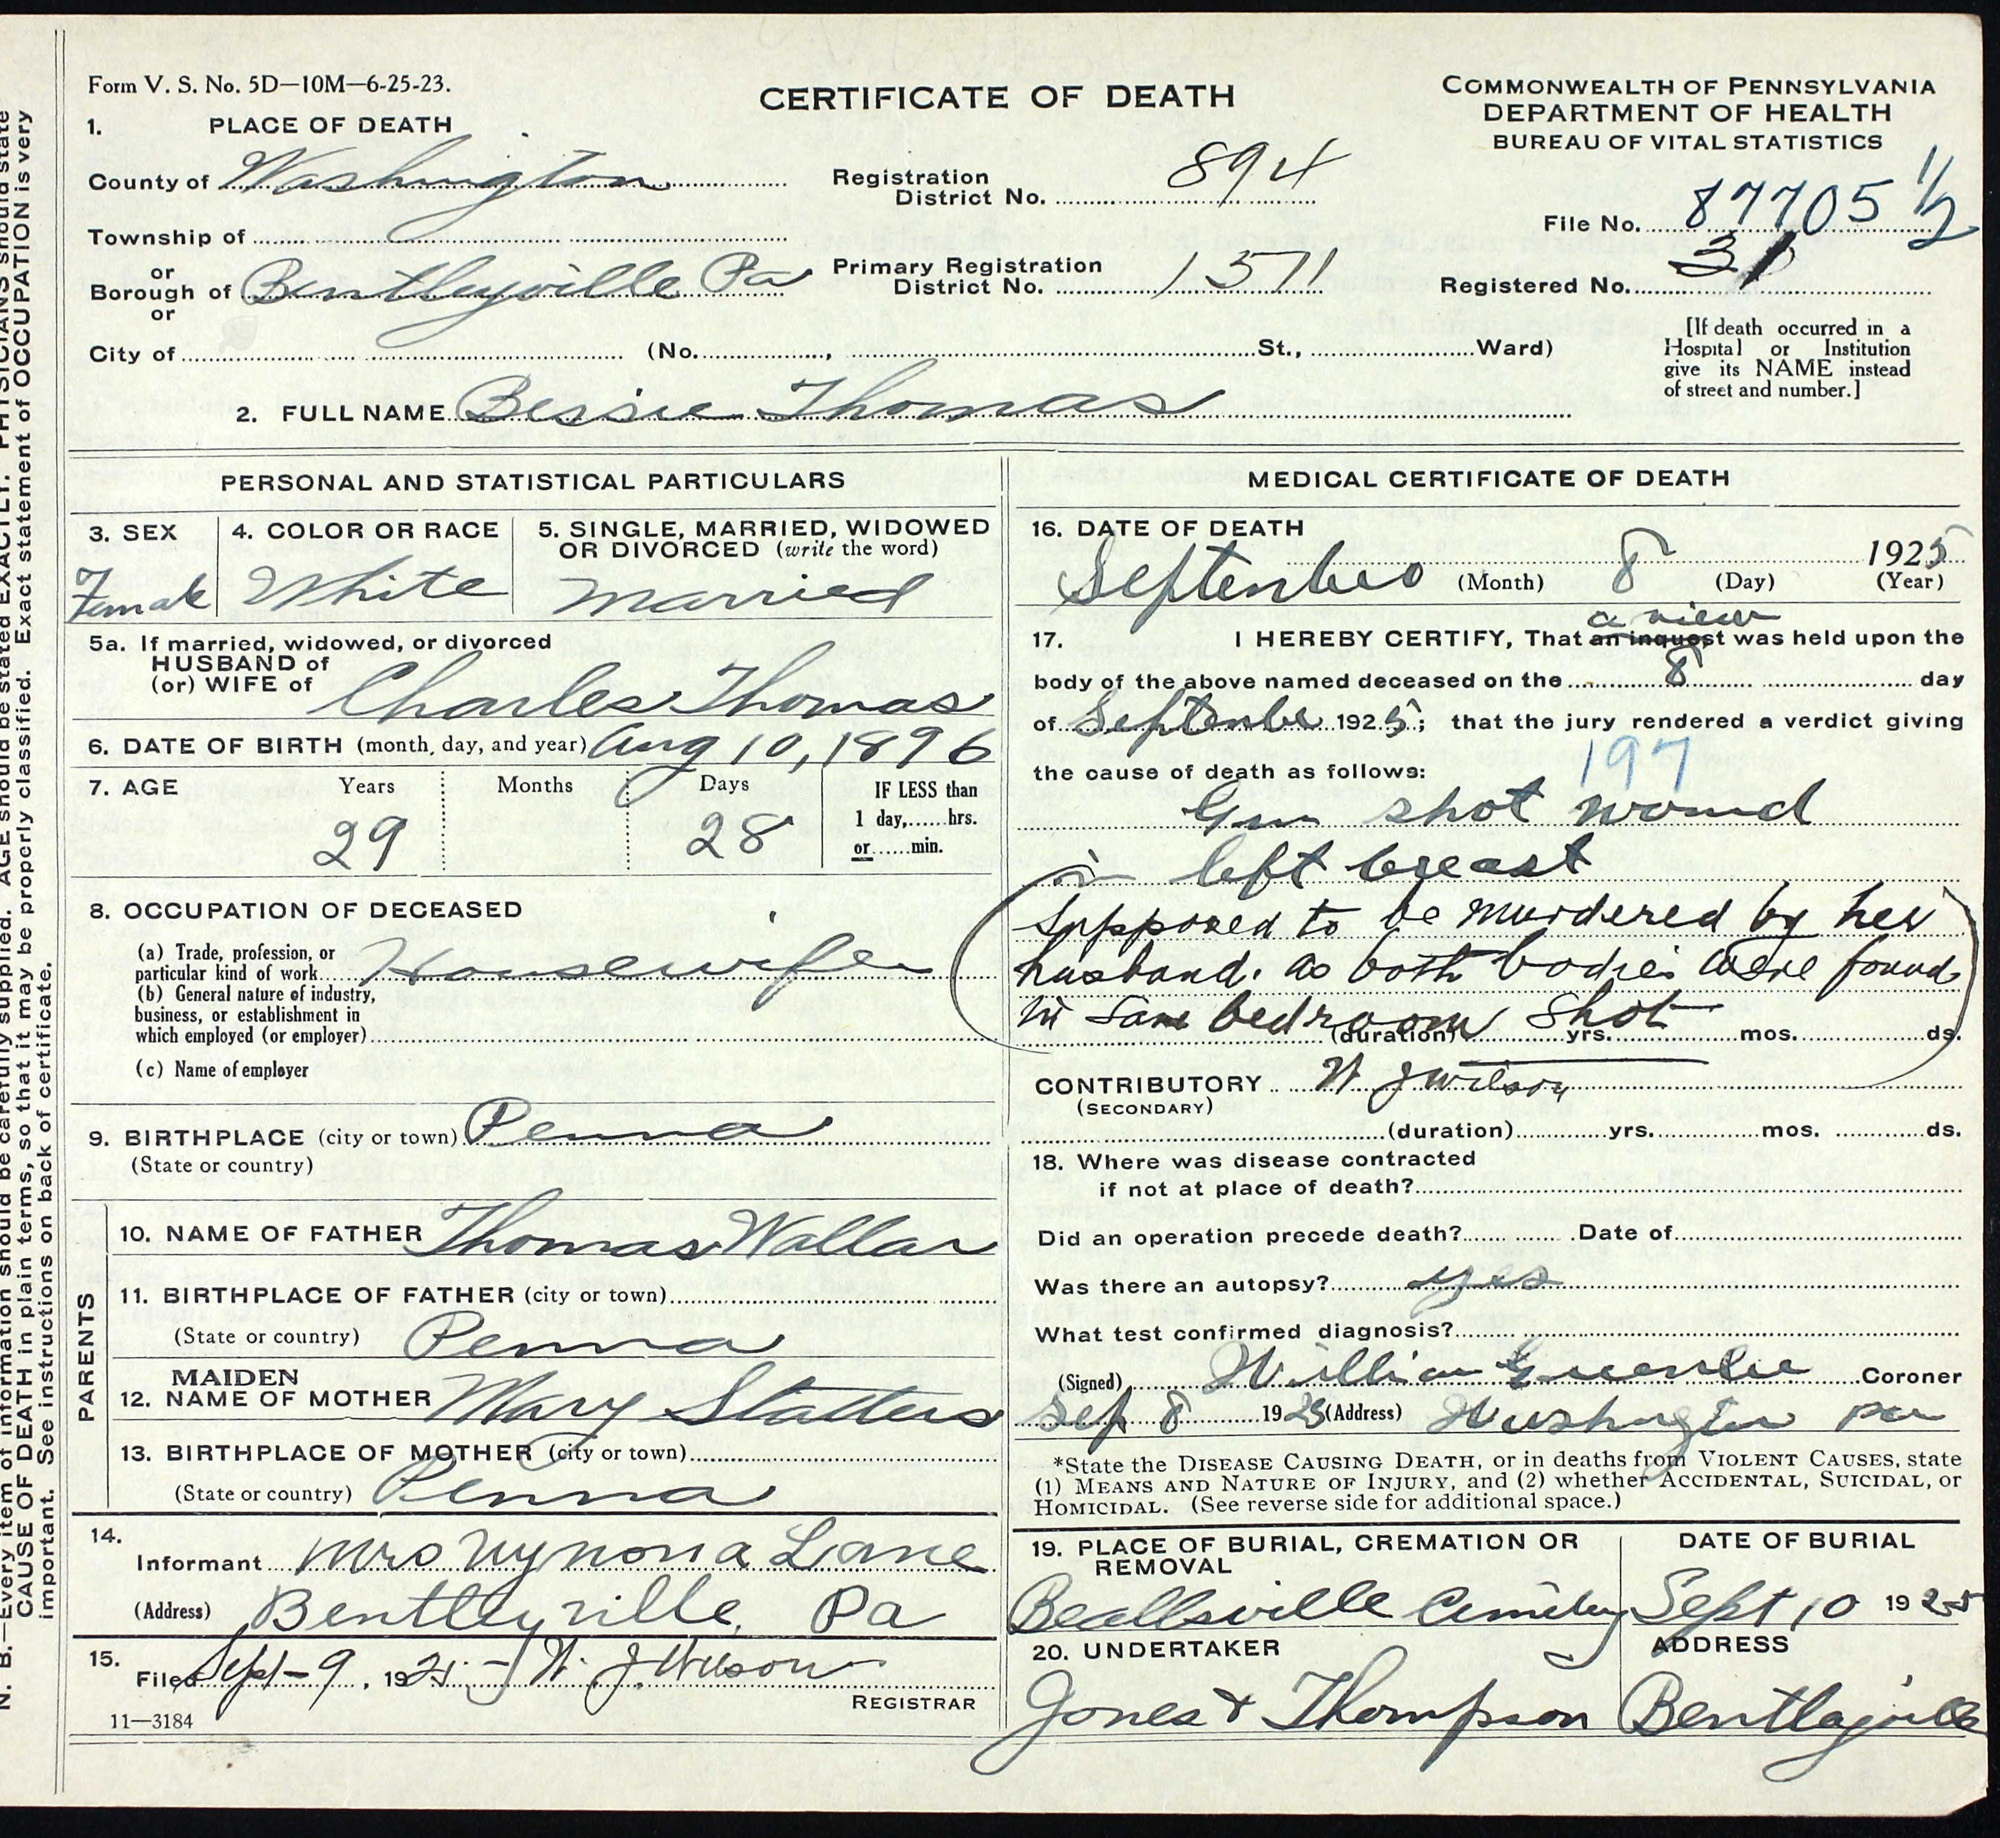 Form V. S. No. 5D—10M—6-25-23.
CERTIFICATE OF DEATH
COMMONWEALTH OF PENNSYLVANIA
DEPARTMENT OF HEALTH
BUREAU OF VITAL STATISTICS
1. PLACE OF DEATH
County of Washington
Registration District No. 894
File No. 87705 1/2
Township of
or
Borough of Bentleyville Pa
or
Primary Registration District No. 1371
Registered No. 31
City of (No. , St., Ward)
[If death occurred in a
Hospital or Institution
give its NAME instead
of street and number.]
2. FULL NAME Bessie Thomas
PERSONAL AND STATISTICAL PARTICULARS
3. SEX
Female
4. COLOR OR RACE
White
5. SINGLE, MARRIED, WIDOWED
OR DIVORCED (write the word)
Married
5a. If married, widowed, or divorced
HUSBAND of
(or) WIFE of Charles Thomas
6. DATE OF BIRTH (month, day, and year) Aug 10, 1896
7. AGE Years Months Days
29 28
IF LESS than
1 day, hrs.
or min.
8. OCCUPATION OF DECEASED
(a) Trade, profession, or
particular kind of work Housewife
(b) General nature of industry,
business, or establishment in
which employed (or employer)
(c) Name of employer
9. BIRTHPLACE (city or town) Penna
(State or country)
PARENTS
10. NAME OF FATHER Thomas Wallar
11. BIRTHPLACE OF FATHER (city or town)
(State or country) Penna
MAIDEN
12. NAME OF MOTHER Mary Statters
13. BIRTHPLACE OF MOTHER (city or town)
(State or country) Penna
14.
Informant Mrs Wynona Lane
(Address) Bentleyville, Pa
15.
Filed Sept-9, 1925 W. J. Wilson
REGISTRAR
11—3184
MEDICAL CERTIFICATE OF DEATH
16. DATE OF DEATH
September 8 1925
(Month) (Day) (Year)
a view
17. I HEREBY CERTIFY, That an inquest was held upon the
body of the above named deceased on the 8 day
of September 1925; that the jury rendered a verdict giving
197
the cause of death as follows:
Gun shot wound
in left breast
Supposed to be murdered by her
husband. as both bodies were found
in same bedroom shot
(duration) yrs. mos. ds.
CONTRIBUTORY W J Wilson
(SECONDARY)
(duration) yrs. mos. ds.
18. Where was disease contracted
if not at place of death?
Did an operation precede death? Date of
Was there an autopsy? yes
What test confirmed diagnosis?
(Signed) William Greenlee Coroner
Sep 8 1925 (Address) Washington Pa
*State the DISEASE CAUSING DEATH, or in deaths from VIOLENT CAUSES, state
(1) MEANS AND NATURE OF INJURY, and (2) whether ACCIDENTAL, SUICIDAL, or
HOMICIDAL. (See reverse side for additional space.)
19. PLACE OF BURIAL, CREMATION OR
REMOVAL
Beallsville Cemetery
DATE OF BURIAL
Sept 10 1925
20. UNDERTAKER
Jones & Thompson
ADDRESS
Bentleyville
N. B.—Every item of information should be carefully supplied. AGE should be stated EXACTLY. PHYSICIANS should state
CAUSE OF DEATH in plain terms, so that it may be properly classified. Exact statement of OCCUPATION is very
important. See instructions on back of certificate.